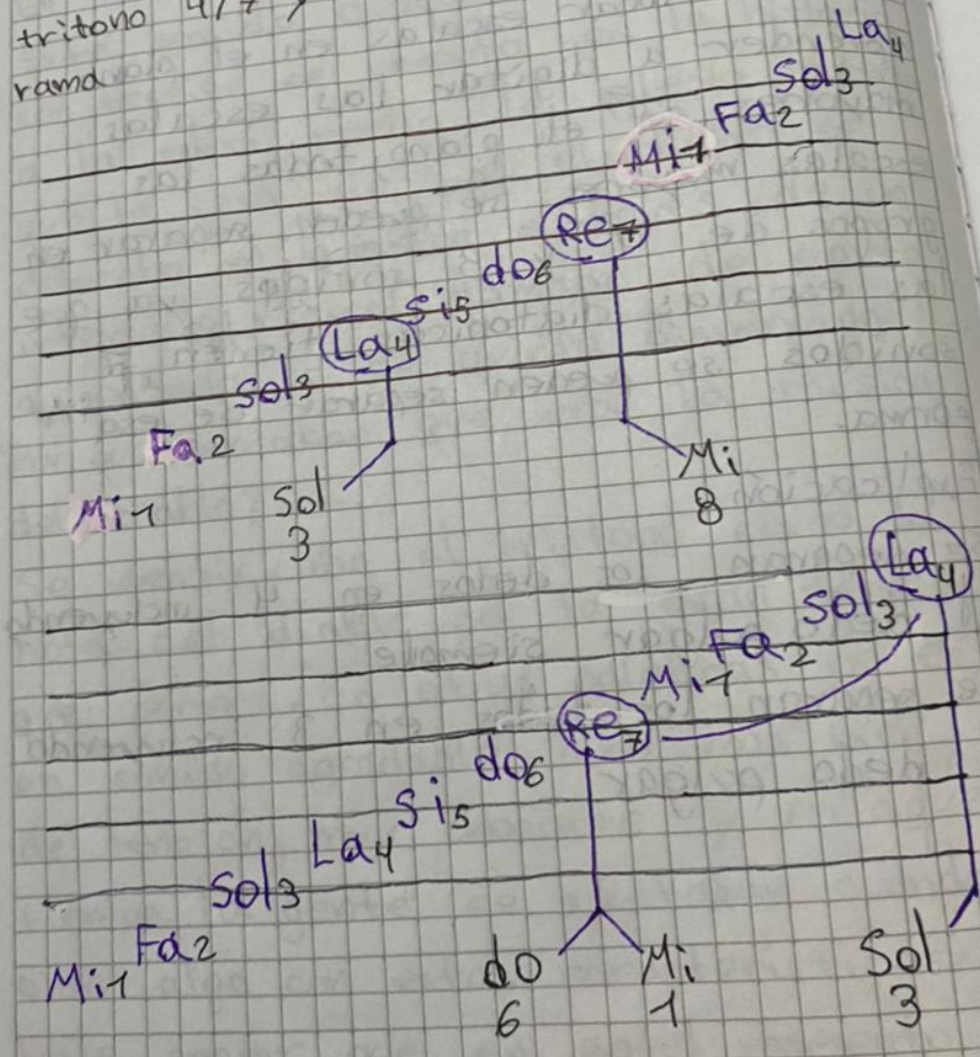 tritono 4/7
rama
La4
Sol3
Fa2
Mi1
Re7
do6
Si5
La4
Sol3
Fa2
Mi1
Sol
3
Mi
8
La4
Sol3
Fa2
Mi1
Re7
do6
Si5
La4
Sol3
Fa2
Mi1
do Mi Sol
6 1 3